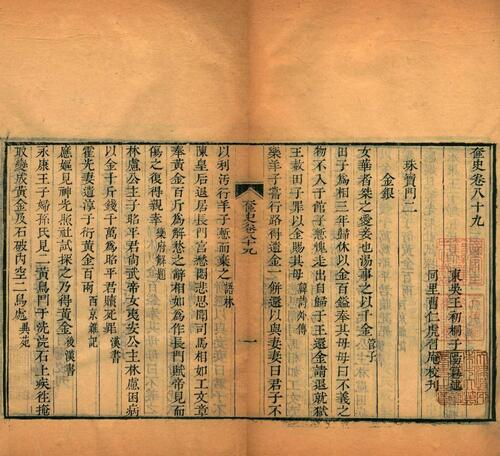 奩史卷八十九
東吳王初桐于陽纂述
同里曹仁虎習庵校刊
珠寶門二
金銀
女華者桀之愛妾也湯事之以千金管子
田子爲相三年歸休以金百鎰奉其母母曰不義之
物不入于館子慙愧走出自歸于王還金請退就獄
王赦田子罪以金賜其母韓詩外傳
樂羊子嘗行路得遺金一餅還以與妻妻曰君子不
奩史卷八十九
一
以利汚行羊子慙而棄之語林
陳皇后退居長門宮愁悶悲思聞司馬相如工文章
奉黃金百斤爲解愁之辭相如爲作長門賦帝見而
傷之復得親幸樂府解題
林慮公主子昭平君尙武帝女夷安公主林慮困病
以金千斤錢千萬爲昭平君贖死罪漢書
霍光妻遺淳于衍黃金百兩西京雜記
應嫗見神光照社試探之乃得黃金後漢書
永康王子婦孫氏見二黃鳥鬥于洗浣石上疾往掩
取變成黃金及石破內空二鳥處異苑